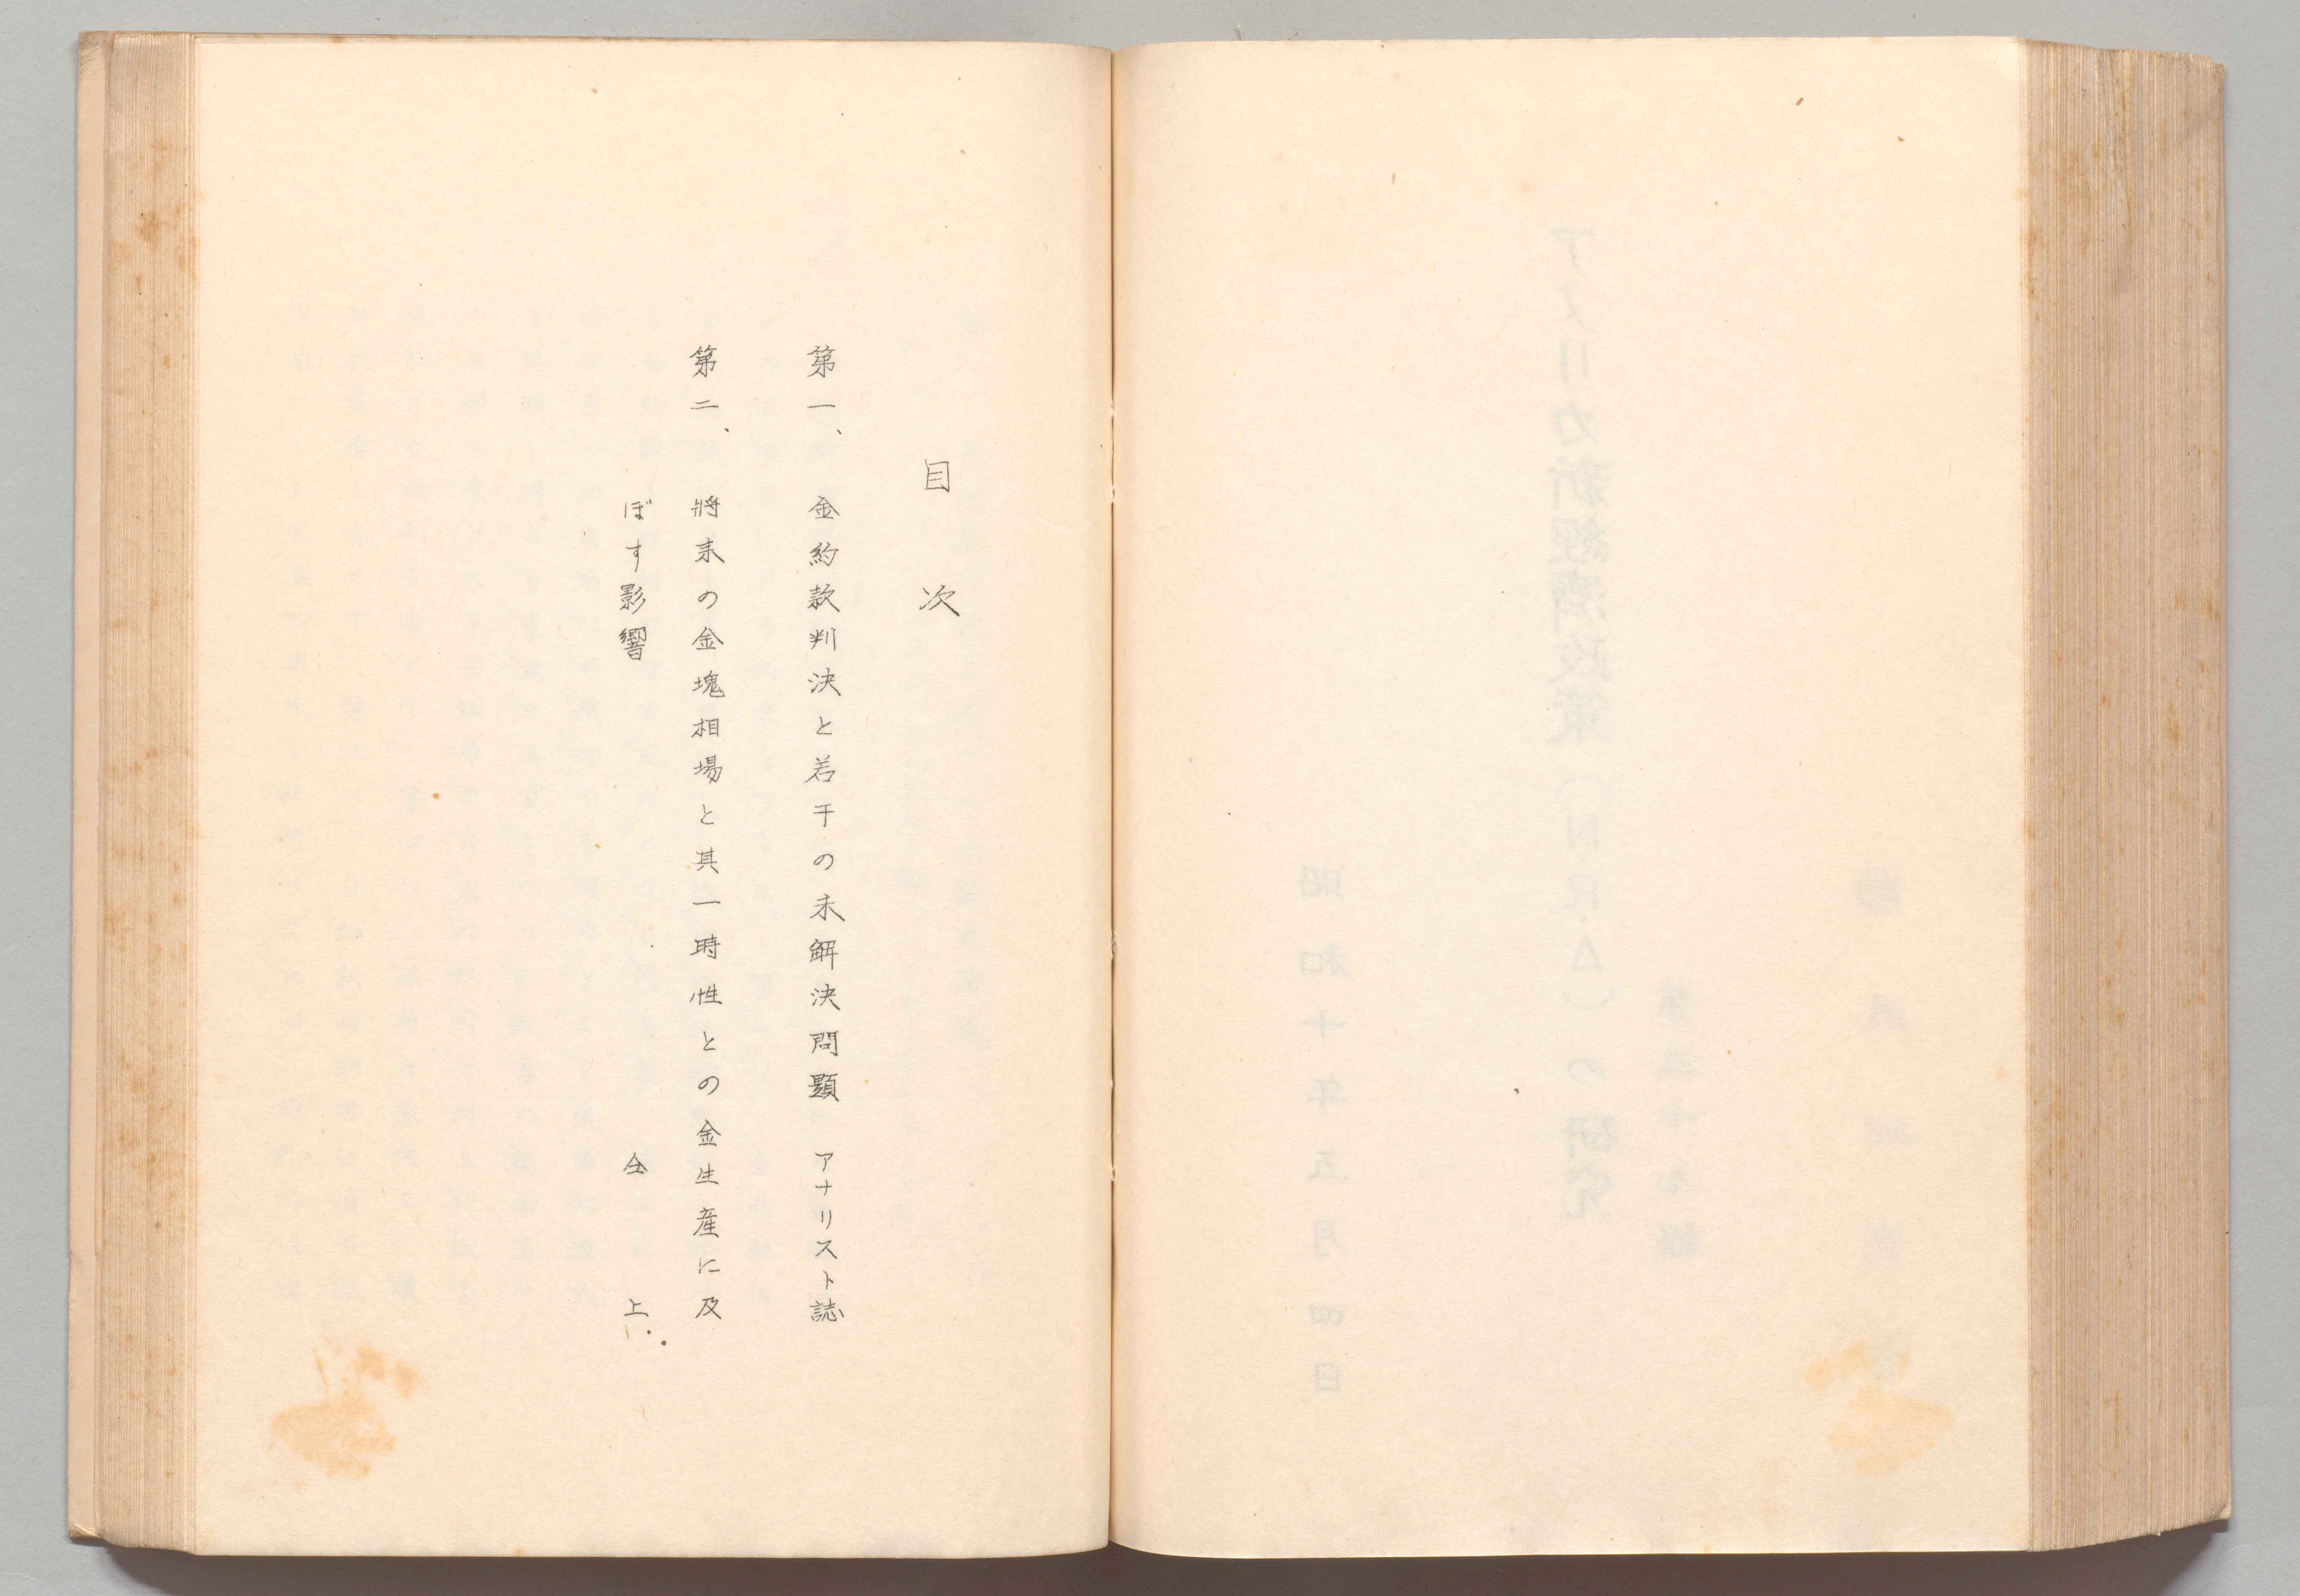 目次
第一、金約款判決と若干の未解決問題 アナリスト誌
第二、將来の金塊相場と其一時性との金生産に及
ぼす影響 仝上